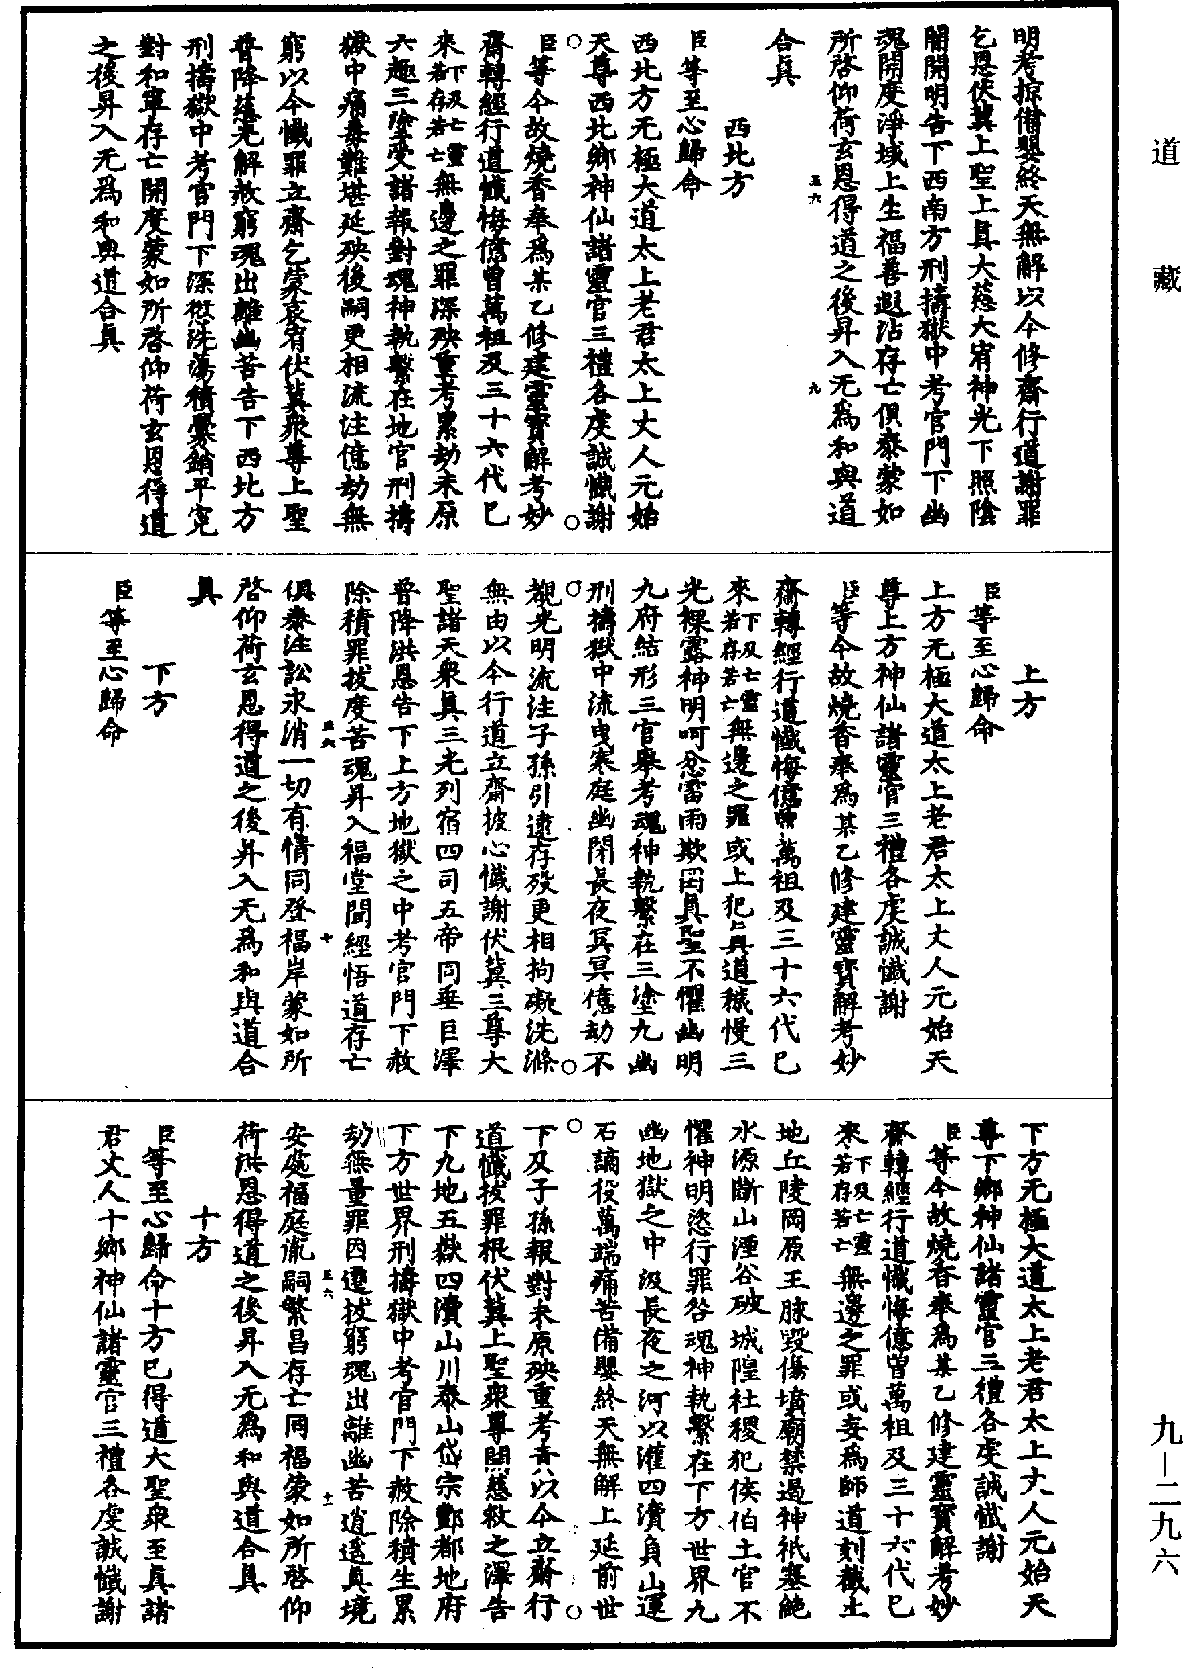 道藏
九—二九六
明考掠備嬰終天無解以今修齋行道謝罪
乞恩伏冀上聖上真大慈大宥神光下照陰
闇開明告下西南方刑擣獄中考官門下幽
魂開度淨域上生福善遐沾存亡俱泰蒙如
所啓仰荷玄恩得道之後昇入无爲和與道
合真
西北方
臣等至心歸命
西北方无極大道太上老君太上丈人元始
天尊西北鄉神仙諸靈官三禮各虔誠懺謝
臣等今故燒香奉爲某乙修建靈寶解考妙
齋轉經行道懺悔億曾萬祖及三十六代已
來下及亡靈若存若亡無邊之罪深殃重考累劫未原
六趣三塗受諸報對魂神執繫在地官刑擣
獄中痛毒難堪延殃後嗣更相流注億劫無
窮以今懺罪立齋乞蒙哀宥伏冀衆尊上聖
普降慈光解赦窮魂出離幽苦告下西北方
刑擣獄中考官門下深愆洗蕩積釁銷平寃
對和寧存亡開度蒙如所啓仰荷玄恩得道
之後昇入无爲和與道合真
五六
九
上方
臣等至心歸命
上方无極大道太上老君太上丈人元始天
尊上方神仙諸靈官三禮各虔誠懺謝
臣等今故燒香奉爲某乙修建靈寶解考妙
齋轉經行道懺悔億曾萬祖及三十六代已
來下及亡靈若存若亡無邊之罪或上犯與道穢慢三
光裸露神明呵忿雷雨欺罔真聖不懼幽明
九府結形三官舉考魂神執繫在三塗九幽
刑擣獄中流曳寒庭幽閉長夜冥冥億劫不
覩光明流注子孫引逮存殁更相拘礙洗滌
無由以今行道立齋披心懺謝伏冀三尊大
聖諸天衆真三光列宿四司五帝同垂巨澤
普降洪恩告下上方地獄之中考官門下赦
除積罪拔度苦魂昇入福堂聞經悟道存亡
俱泰注訟永消一切有情同登福岸蒙如所
啓仰荷玄恩得道之後昇入无爲和與道合
真
五六
十
下方
臣等至心歸命
下方无極大道太上老君太上丈人元始天
尊下鄉神仙諸靈官三禮各虔誠懺謝
臣等今故燒香奉爲某乙修建靈寶解考妙
齋轉經行道懺悔億曾萬祖及三十六代已
來下及亡靈若存若亡無邊之罪或妄爲師道刻截土
地丘陵岡原王脉毀傷墳廟禁遏神祇塞絕
水源斷山湮谷破城隍社稷犯侯伯土官不
懼神明恣行罪咎魂神執繫在下方世界九
幽地獄之中汲長夜之河以灌四瀆負山運
石謫役萬端痛苦備嬰終天無解上延前世
下及子孫報對未原殃重考責以今立齋行
道懺拔罪根伏冀上聖衆尊開慈救之澤告
下九地五嶽四瀆山川泰山岱宗酆都地府
下方世界刑擣獄中考官門下赦除積生累
劫無量罪因遷拔窮魂出離幽苦逍遥真境
安處福庭胤嗣繁昌存亡同福蒙如所啓仰
荷洪恩得道之後昇入无爲和與道合真
五六
十一
十方
臣等至心歸命十方已得道大聖衆至真諸
君丈人十鄉神仙諸靈官三禮各虔誠懺謝